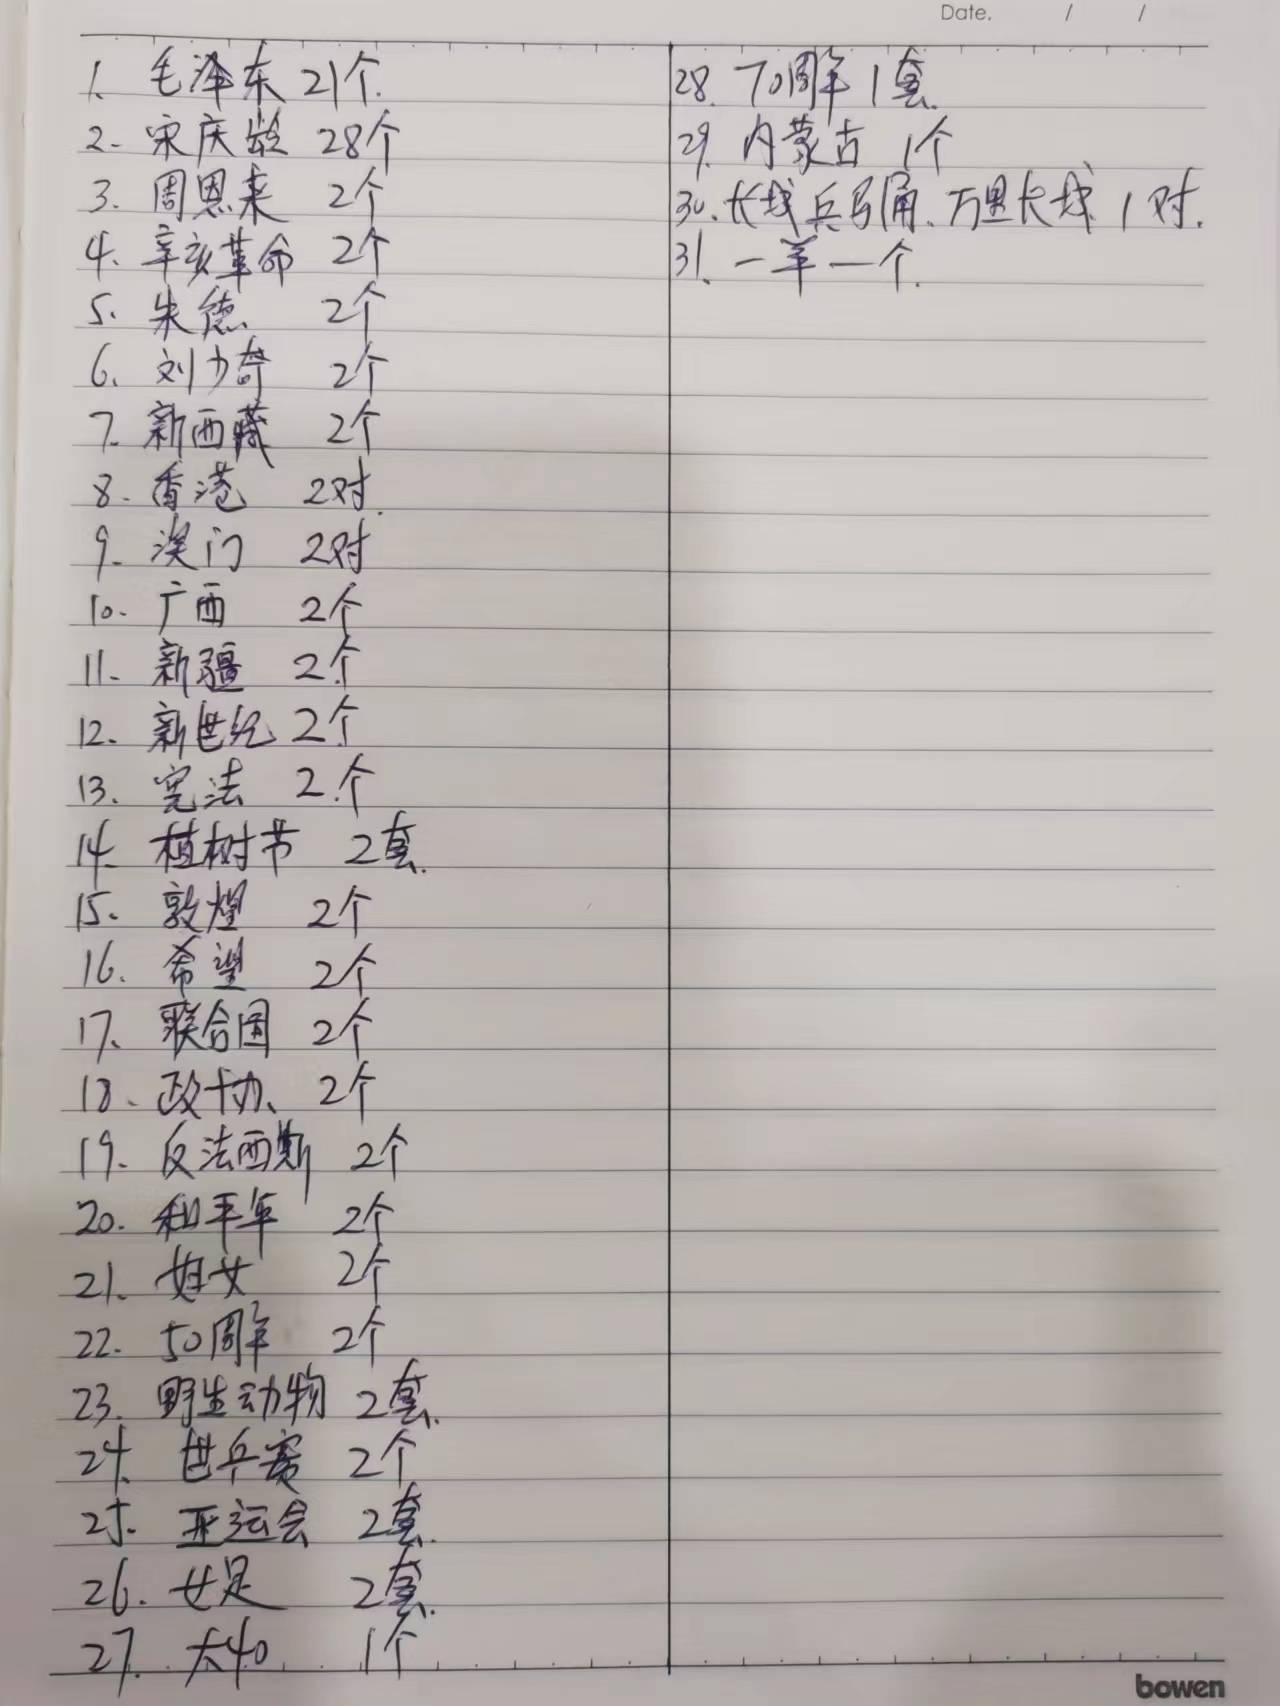 Date. / /
1. 毛泽东 21个.
2. 宋庆龄 28个
3. 周恩来 2个
4. 辛亥革命 2个
5. 朱德 2个
6. 刘少奇 2个
7. 新西藏 2个
8. 香港 2对.
9. 澳门 2对
10. 广西 2个
11. 新疆 2个
12. 新世纪 2个
13. 宪法 2个
14. 植树节 2套.
15. 敦煌 2个
16. 希望 2个
17. 联合国 2个
18. 政协 2个
19. 反法西斯 2个
20. 和平年 2个
21. 妇女 2个
22. 50周年 2个
23. 野生动物 2套.
24. 世乒赛 2个
25. 亚运会 2套.
26. 女足 2套.
27. 大40 1个
28. 70周年 1套.
29. 内蒙古 1个
30. 长城兵马俑、万里长城 1对.
31. 一羊一个.
bowen